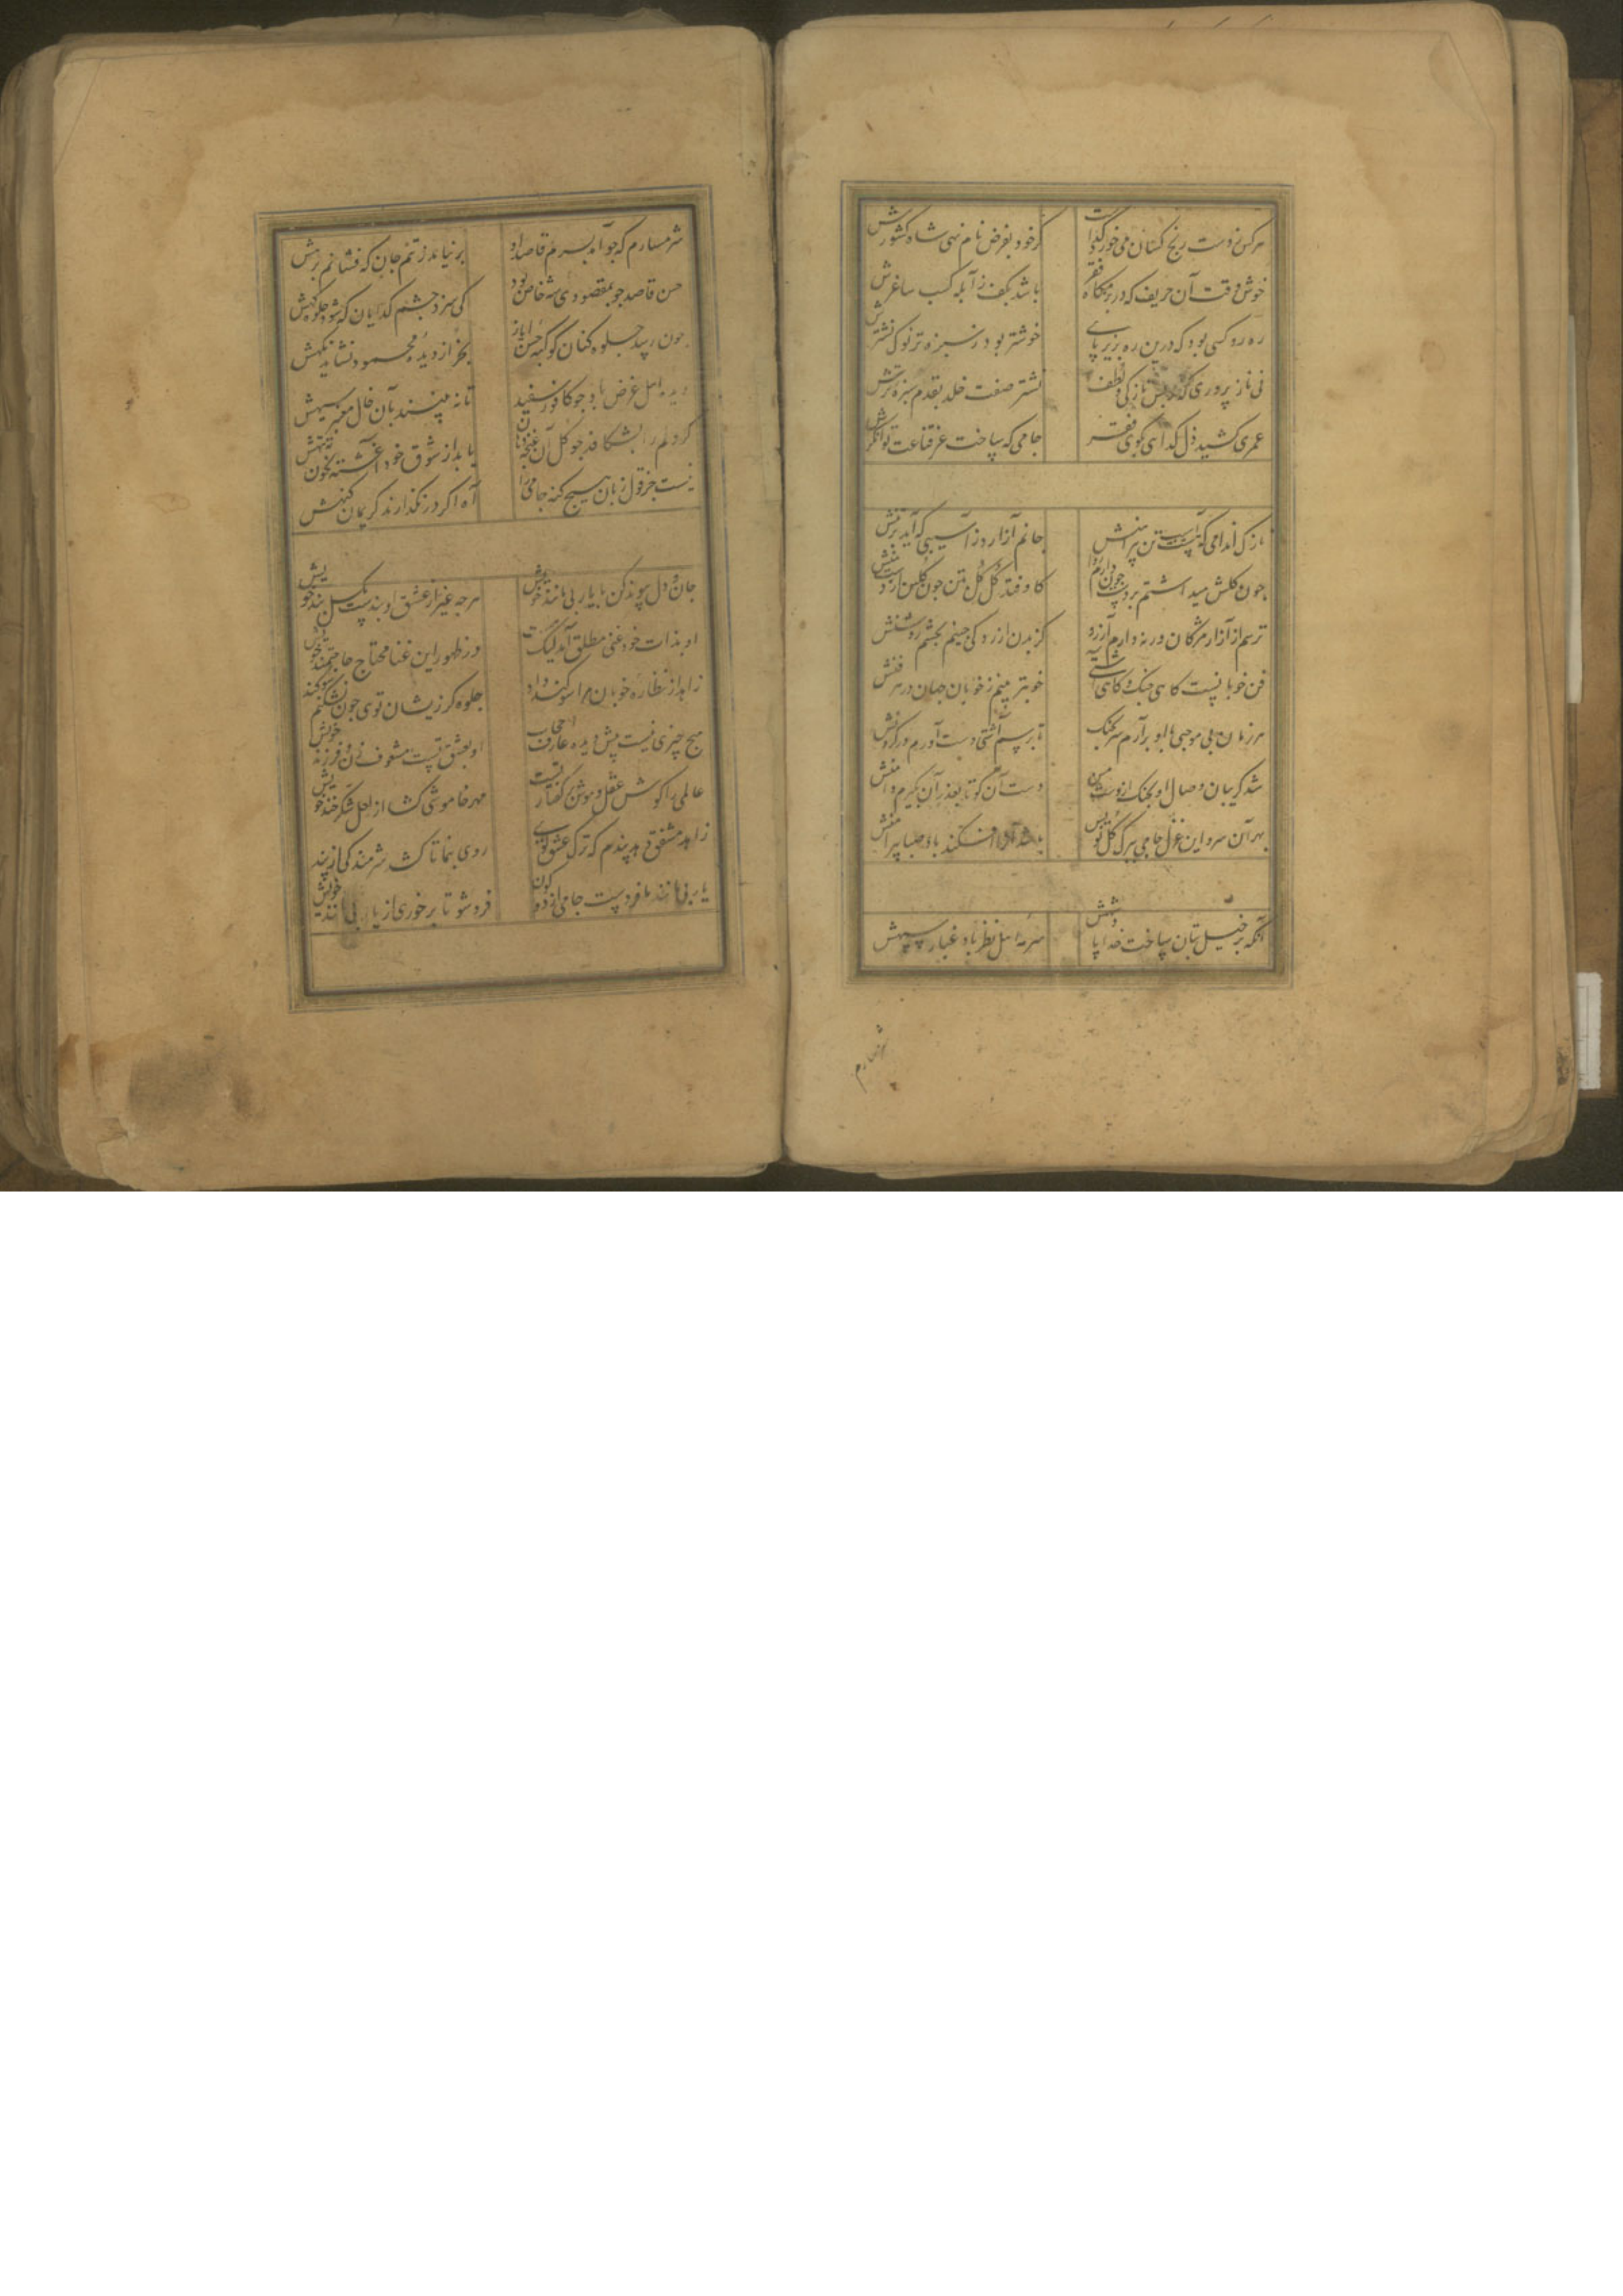 هر کس ز دست رنج کسان می خورد گداست
گر خود بفرض نام نهی شاه کشورش
خوش وقت آن حریف که در بزمگاه فقر
باشد بکف ز آبله کسب ساغرش
ره رو کسی بود که درین ره بزیر پای
خوشتر بود ز سبزه تر نوک نشترش
نی ناز پروری که ز بس نازکی و لطف
نشتر صفت خلد بقدم سبزه ترش
عمری کشید ذل گدای کوی فقر
جامی که ساخت عز قناعت توانگرش
نازک اندامی که آسیبست تن پیراهنش
جانم آزارد ز آسیبی که آید بر تنش
کاوفتد گل گل بتن چون گلبن از
ترسم از آزار مژگان ورنه دارم آرزو
کز بدن ازرد کی چینم بچشم روشنش
فن خوبانست کاهی جنگ و کاهی آشتی
خوبتر بینم ز خوبان جهان در هر فنش
هر زمان بی موجبی با او بر آرم سر بجنگ
تا برسم آشتی دست آورم در گردنش
شد گریبان وصال او بجنگ از دست من
دست آن کو تا بعذر آن بگیرم دامنش
بهر آن سرو این غزل جامی ببرگ گل نویس
باشد آنرا افکند باد صبا پیرامنش
آنکه بر خیل بتان ساخت خدا پادشهش
سرمه اهل نظر باد غبار سپهش
شرمسارم
شرمسارم که چو آمد بسرم قاصد او
بر نیامد ز تنم جان که فشانم برهش
حسن قاصد چو بمقصودی شه خاص بود
کی سزد چشم گدایان که شود جلوه گهش
چون رسید جلوه کنان کوکبه حسن ایاز
بجز از دیده محمود نشاید نگهش
دیده اهل غرض باد چو کافور سفید
تا نه بپسندد بآن خال معنبر سیهش
گر دلم را بشکافند چو گل آن غنچه دهان
یابد از شوق خود آغشته بخون ته بتهش
نیست جز قول زبان هیچ گنه جامی را
آه اگر در نگذارند کریمان گنهش
جان و دل پیوند کن با یار بی مانند خویش
هر چه غیر از عشق او بندیست بگسل بند خویش
او بذات خود غنی مطلق آمد لیک هست
در ظهور این غنا محتاج حاجتمند خویش
زاهد از نظاره خوبان مرا سوگند داد
جلوه گر زیشان توی چون نشکنم سوگند خویش
هیچ چیزی نیست پیش دیده عارف حجاب
او بعشق تست مشعوف زن و فرزند خویش
عالمی را گوش عقل و هوش بر گفتار تست
مهر خاموشی گشا از لعل شکرخند خویش
زاهد مشفق دهد پندم که ترک عشق گوی
روی بنما تا کشد شرمندگی از پند خویش
یار بی مانند ما فردست جامی از دو کون
فرد شو تا برخوری از یار بی مانند خویش